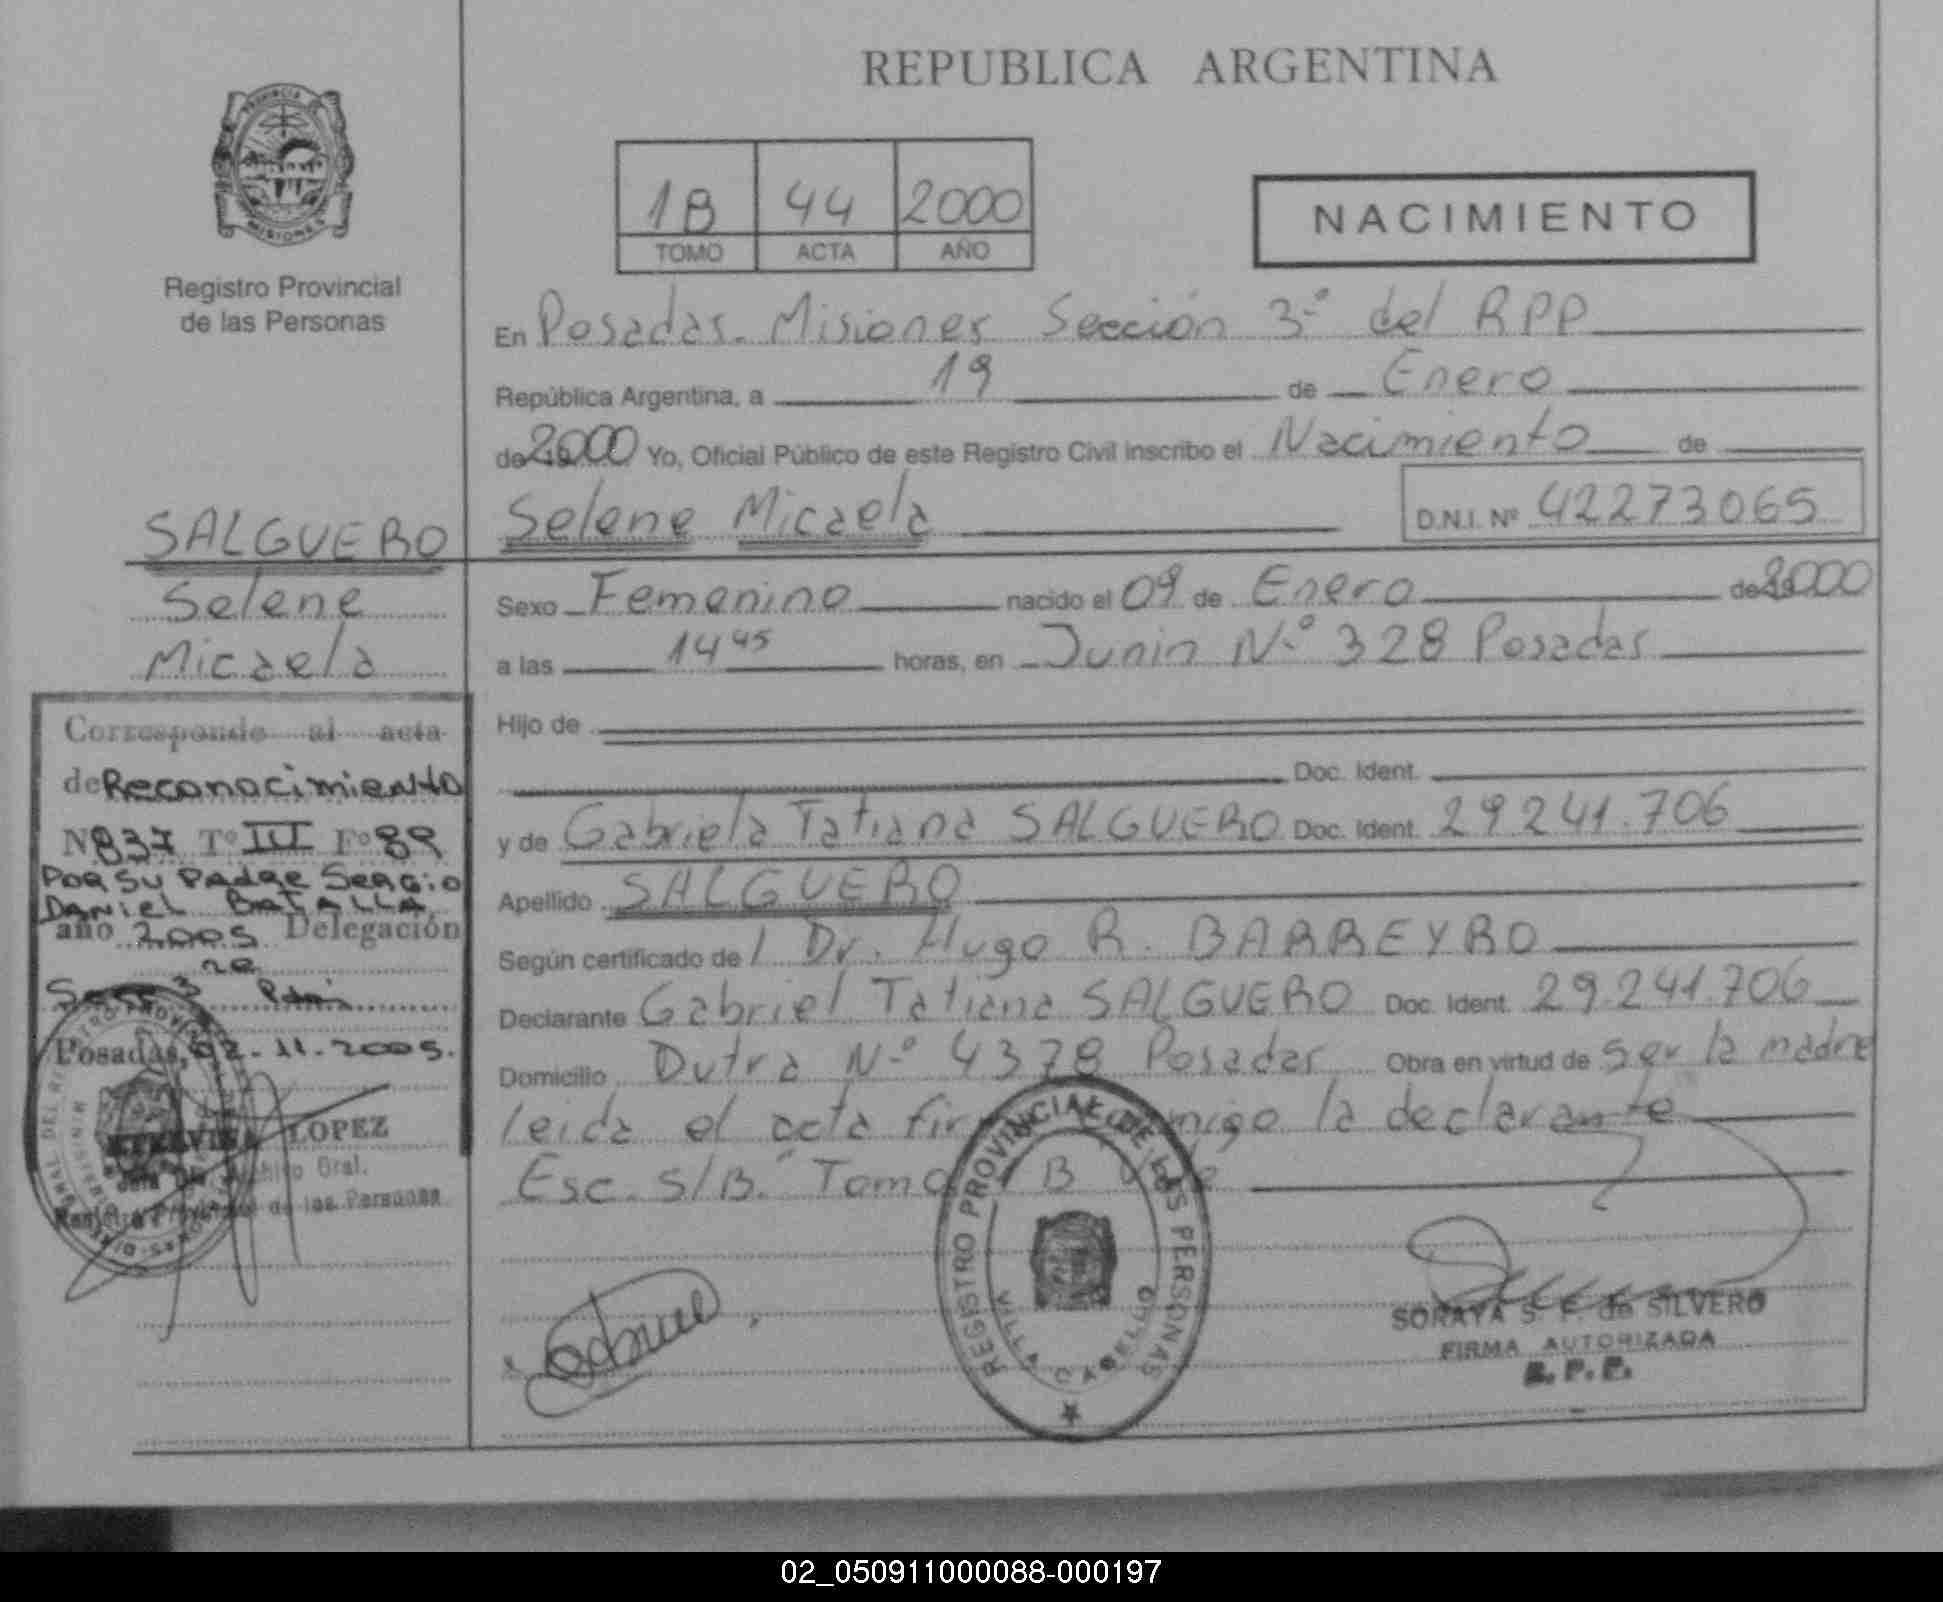 REPUBLICA ARGENTINA
PROVINCIA DE
MISIONES
Registro Provincial
de las Personas
1B 44 2000
TOMO ACTA AÑO
NACIMIENTO
En Posadas. Misiones Sección 3º del RPP
República Argentina, a 19 de Enero
de 2000 Yo, Oficial Público de este Registro Civil inscribo el Nacimiento de
Selene Micaela D.N.I. Nº 42273065
Sexo Femenino nacido el 09 de Enero de 2000
a las 14 45 horas, en Junin Nº 328 Posadas
Hijo de
Doc. Ident.
y de Gabriela Tatiana SALGUERO Doc. Ident. 29.241.706
Apellido SALGUERO
Según certificado de / Dr. Hugo R. BARREYRO
Declarante Gabriel Tatiana SALGUERO Doc. Ident. 29.241.706
Domicilio Dutra Nº 4378 Posadas Obra en virtud de ser la madre
leida el acta la declarante
Esc. S/B. Tomo B
SALGUERO
Selene
Micaela
Corresponde al acta
de Reconocimiento
Nº 837 Tº III Fº 89
Por su Padre Sergio
Daniel BATALLA
año 2005 Delegación
Secc 3 ra Pdas
Posadas, 02-11-2005.
LOPEZ
Archivo Gral.
Registro Provincial de las Personas
REGISTRO PROVINCIAL DE LAS PERSONAS
VILLA CABELLO
SORAYA S. F. de SILVERO
FIRMA AUTORIZADA
R. P. P.
02_050911000088-000197